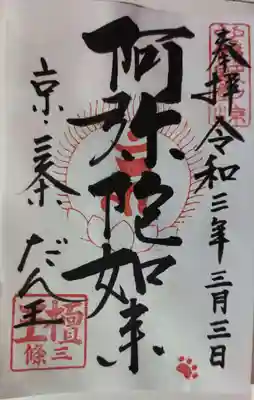 奉拝
令和三年三月三日
阿弥陀如来
京・三条
だん王
檀王
三條